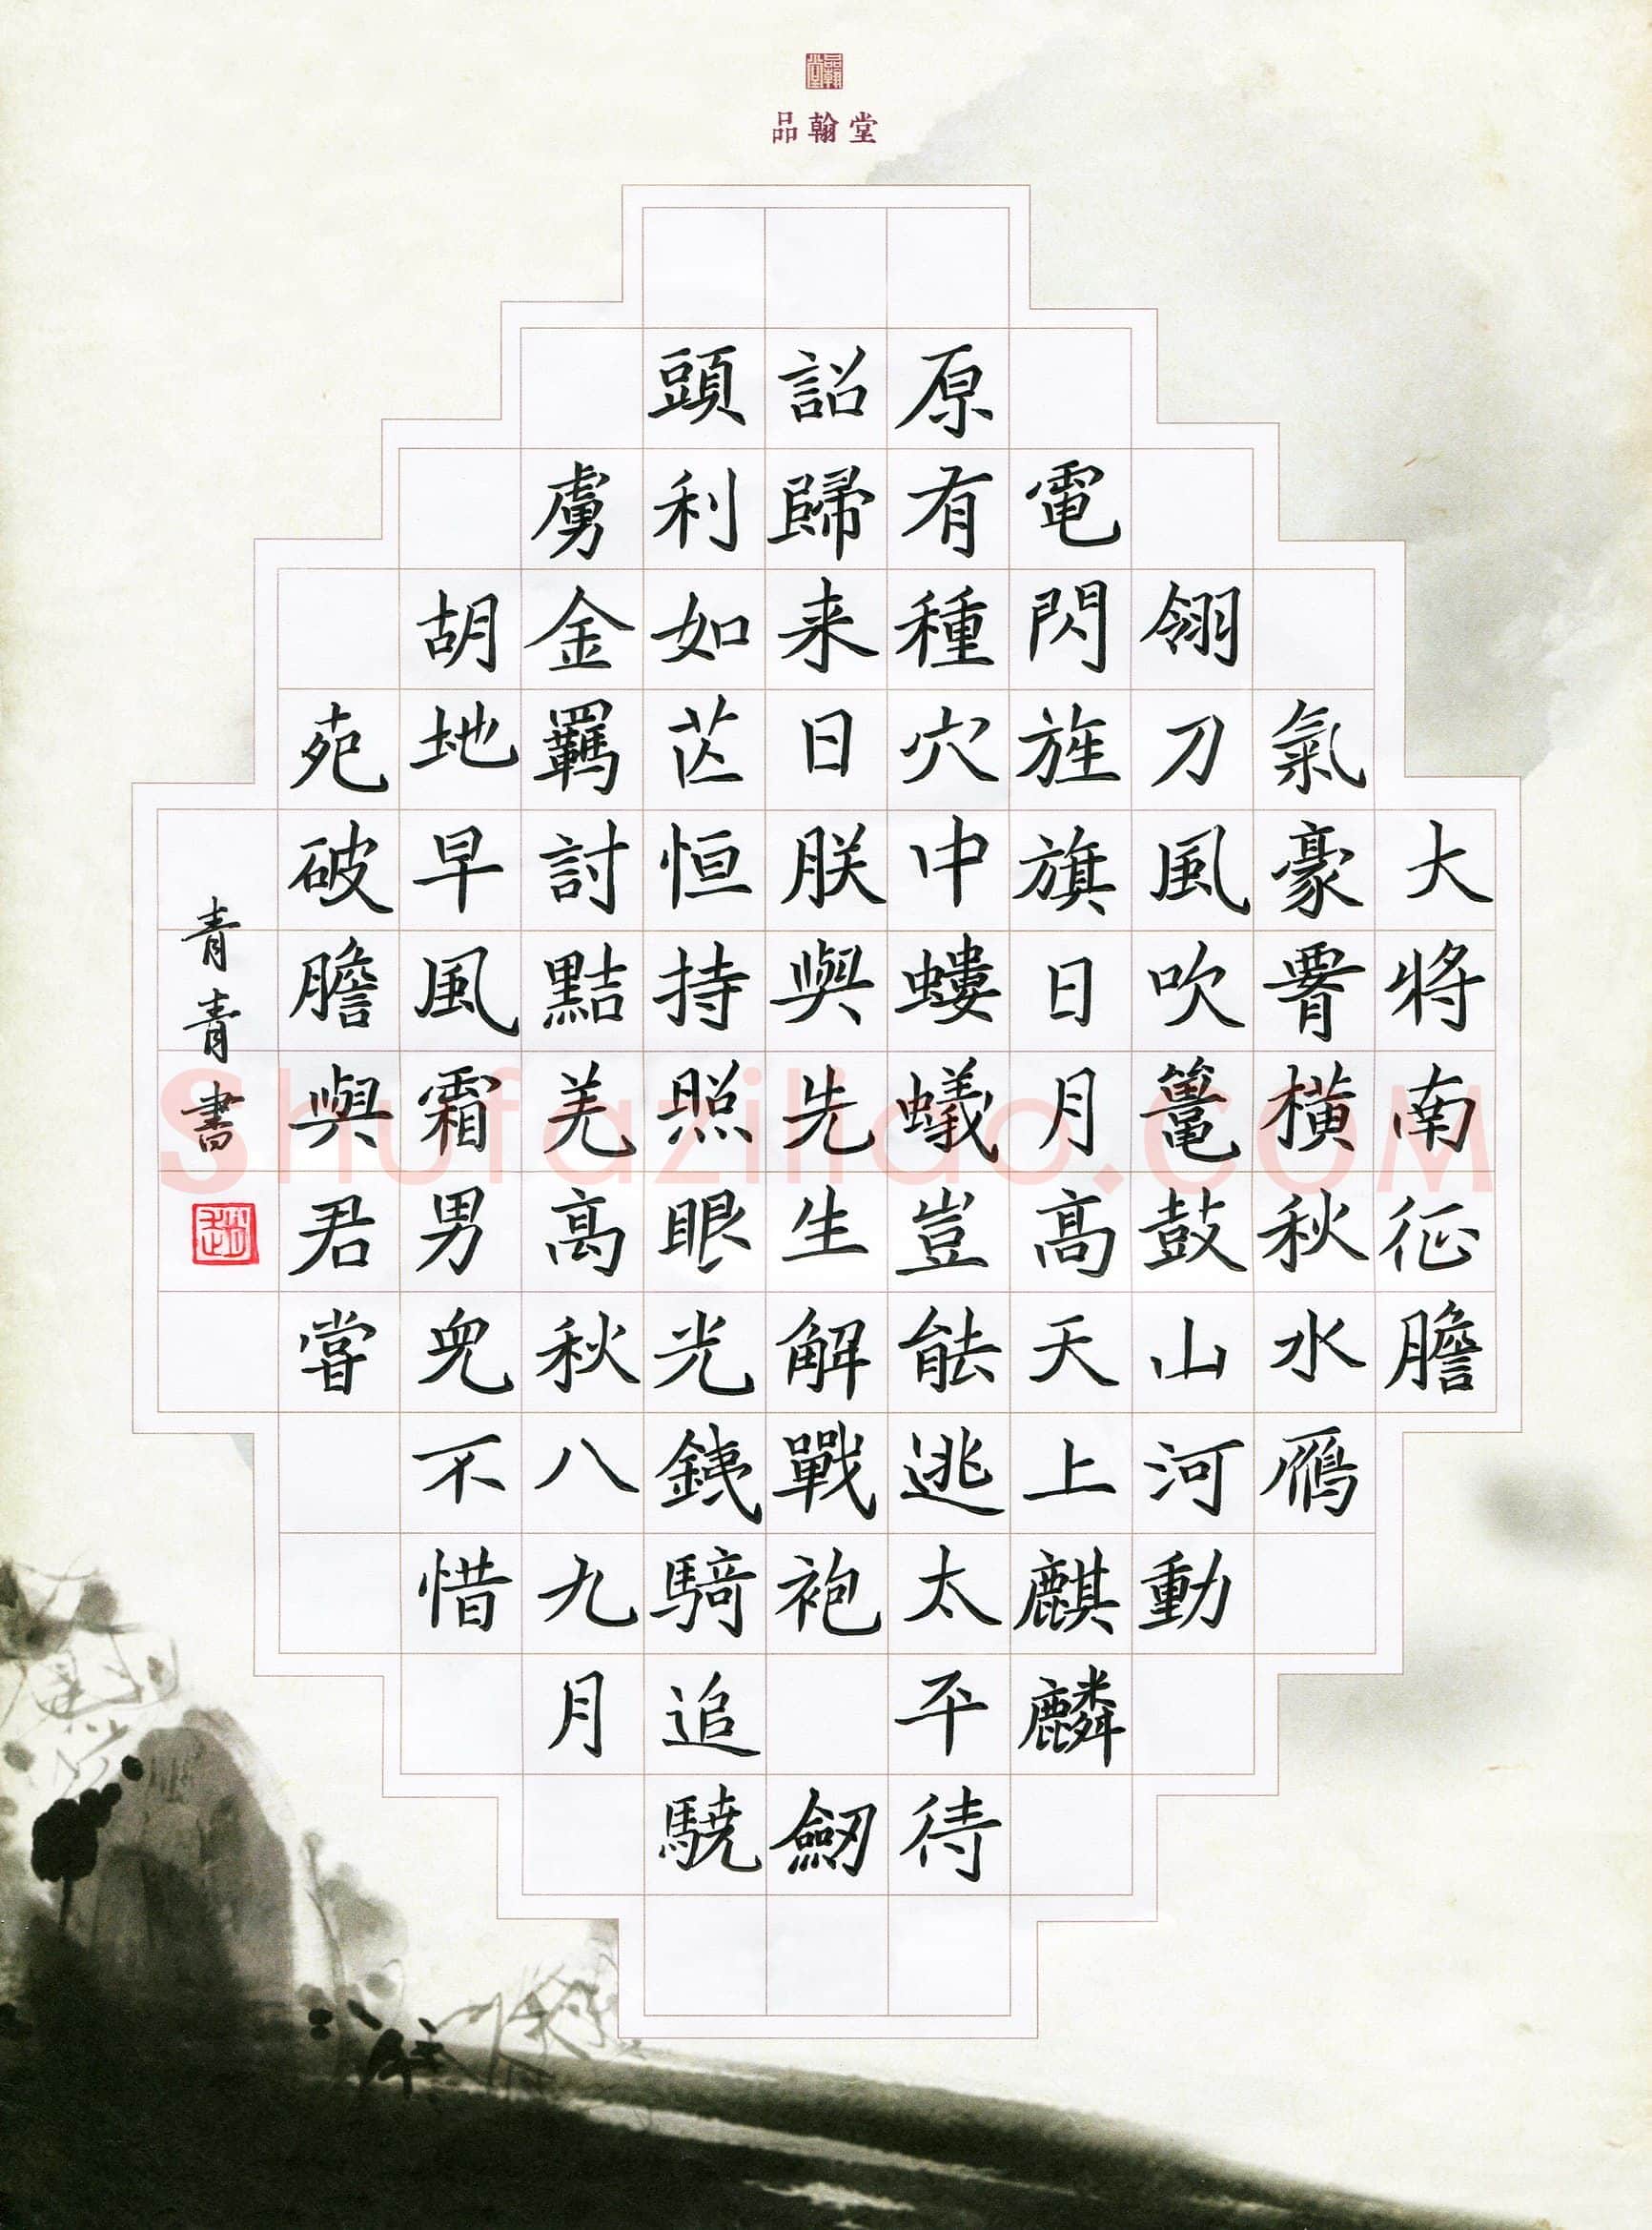 品翰堂
大將南征膽
氣豪腰橫秋水雁
翎刀風吹鼉鼓山河動
電閃旌旗日月高天上麒麟
原有種穴中螻蟻豈能逃太平待
詔歸来日朕與先生解戰袍 劔
頭利如芒恒持照眼光銕騎追驍
虜金羈討黠羌高秋八九月
胡地早風霜男兒不惜
死破膽與君嘗
青青書
趙
Shufaziliao.COM